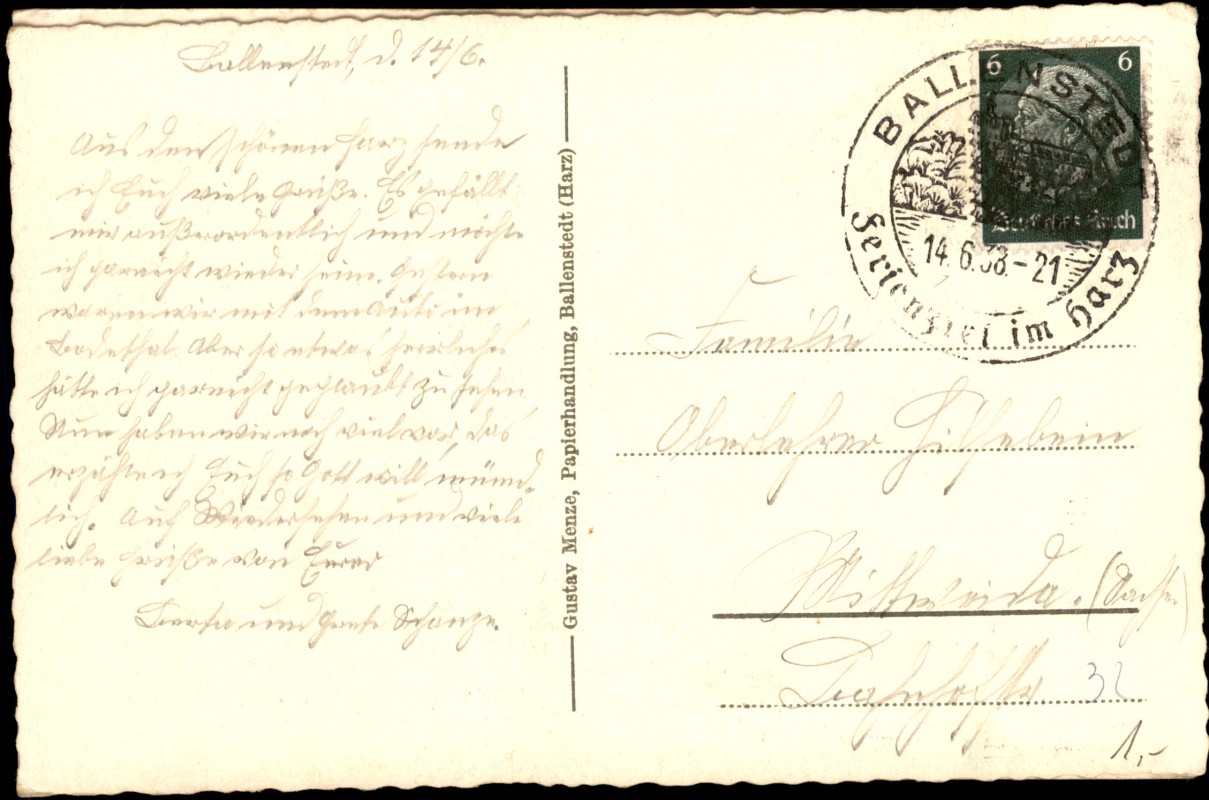 Ballenstedt, d. 14/6.
Aus dem schönen Harz sende
ich Euch viele Grüße. Es gefällt
mir außerordentlich und möchte
ich garnicht wieder heim. Gestern
waren wir mit dem Auto im
Bodethal. Aber so etwas herrliches
hätte ich garnicht geglaubt zu sehen.
Nun haben wir noch viel vor, das
erzähle ich Euch so Gott will münd-
lich. Auf Wiedersehen und viele
liebe Grüße von Eurer
und Grete Schanze.
Gustav Menze, Papierhandlung, Ballenstedt (Harz)
6 6
Deutsches Reich
BALLENSTEDT
14.6.38.-21
Ferienziel im Harz
Familie
Oberlehrer Hilfebein
Mittweida. (Sachsen)
Bahnhofstr. 32
1,-